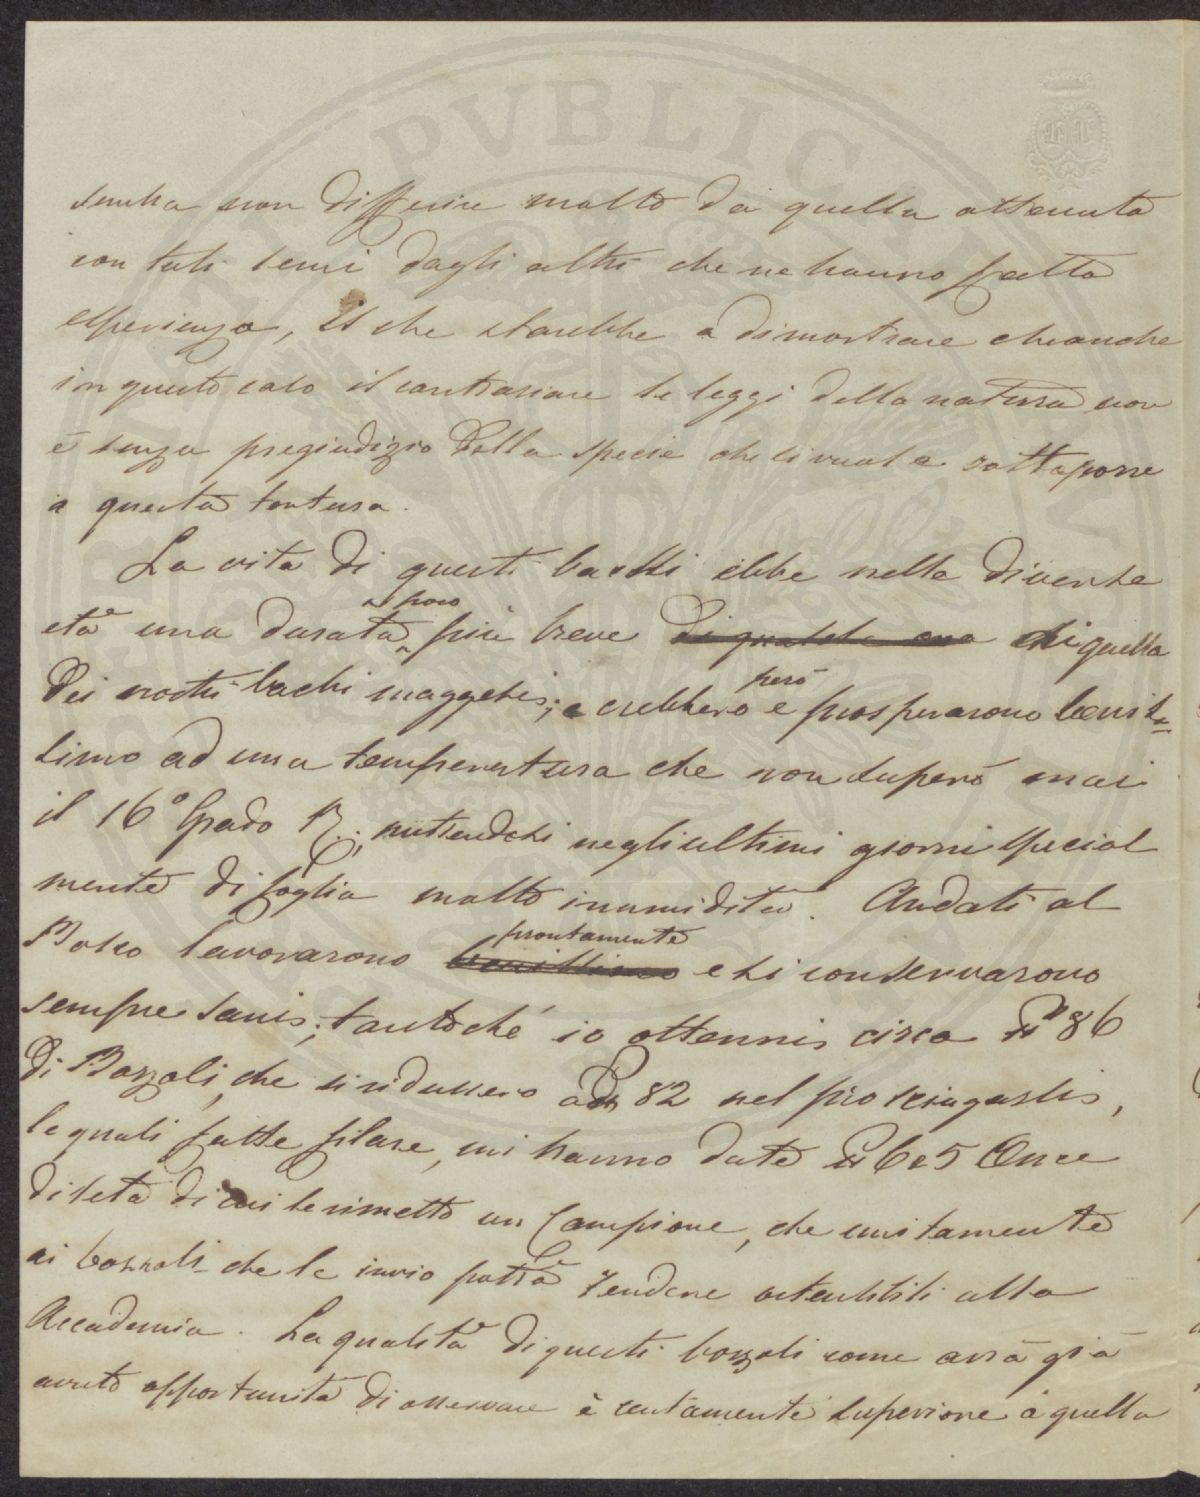 sembra non differire molto da quella ottenuta
con tali semi dagli altri che ne hanno fatto
esperienza, Il che starebbe a dimostrare che anche
in questo caso il contrariare le leggi della natura non
è senza pregiudizio della specie che si vuole sottoporre
a questa tortura.
La vita di questi bachi ebbe nelle diverse
un poco
età una durata più breve di quella
però
dei nostri bachi maggesi; e crebbero e prosperarono benis-
simo ad una temperatura che non superò mai
il 16° Grado R.; nutendosi negli ultimi giorni special
mente di foglia molto inumidita. Andati al
prontamente
Bosco lavorarono benissimo e si conservarono
sempre sani; tantoché io ottenni circa 86
di Bozzoli, che si ridussero a 82 nel prosciugarsi,
le quali fatte filare, mi hanno dato 6 e 5 Once
di seta di cui le rimetto un Campione, che unitamente
ai bozzoli che le invio potrà rendere ostensibili alla
Accademia. La qualità di questi bozzoli come avrà già
avuto opportunità di osservare è certamente superiore a quella
PVBLIC